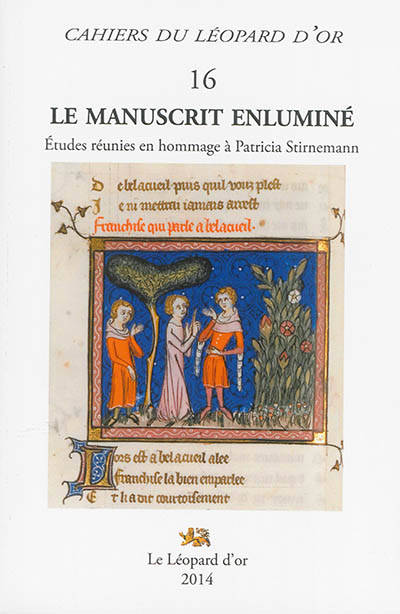 CAHIERS DU LÉOPARD D'OR
16
LE MANUSCRIT ENLUMINÉ
Études réunies en hommage à Patricia Stirnemann
De belacueil puis quil vouz plest
Je ni mettrai iamais arrest
Franchise qui parle a belacueil.
Lors est a belacueil alee
Franchise la bien emparlee
Et li a dit courtoisement
Le Léopard d'or
2014